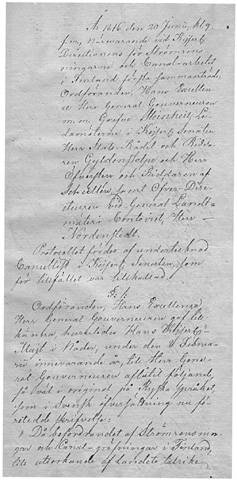 År 1816 den 20 Junii, kl. 9
f.m., Närwarande vid Kejserl.
Directionens för Strömrens-
ningarne och Canal-arbetet
i Finland första sammanträde,
Ordföranden, Hans Excellence
Herr General Gouverneuren
m.m. Grefve Steinheil, Le-
damöterne i Kejserl. Senaten
Herr Stats-Rådet och Ridda-
ren Gyldenstolpe och Herr
Öfversten och Riddaren af
Schultén, samt Öfver-Dire-
cteuren vid General Landt-
mäteri Contoiret, Herr
Nordenstedt.
Protocollet fördes af undertecknad
Cancellist i Kejserl. Senaten, som
för tillfället var tillkallad.
§. 1.
Ordföranden, Hans Excellence,
Herr General Gouverneuren gaf till
känna, hurusledes Hans Kejserl.
Maj:t i Nåder, under den
innevarande år, till Herr Gene-
ral Gouverneuren aflåtit följande,
så väl i original på Ryska Språket,
som i Svensk öfversättning nu fö-
reteddе skrifvelse:
"Då befordrandet af Strömrensnin-
gar och Canal-gräfningar i Finland,
till utvidgande af Landets